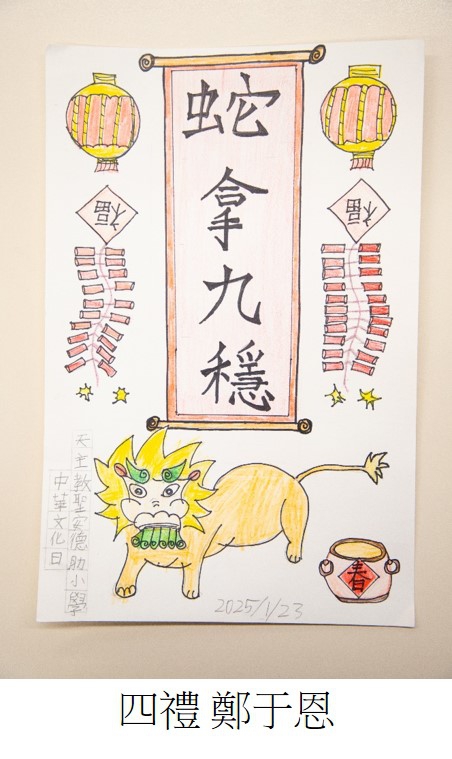 蛇拿九穩
福
福
天主教聖安德肋小學
中華文化日
春
2025/1/23
四禮 鄭于恩